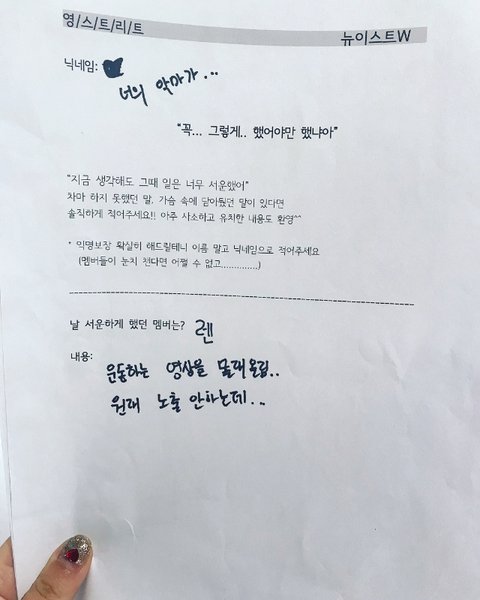 영/스/트/리/트
뉴이스트W
닉네임:
너의 악마가...
"꼭... 그렇게.. 했어야만 했냐아"
"지금 생각해도 그때 일은 너무 서운했어"
차마 하지 못했던 말, 가슴 속에 담아뒀던 말이 있다면
솔직하게 적어주세요!! 아주 사소하고 유치한 내용도 환영^^
* 익명보장 확실히 해드릴테니 이름 말고 닉네임으로 적어주세요
(멤버들이 눈치 챈다면 어쩔 수 없고..............)
날 서운하게 했던 멤버는? 렌
내용:
운동하는 영상을 몰래올림..
원래 노출 안하는데...